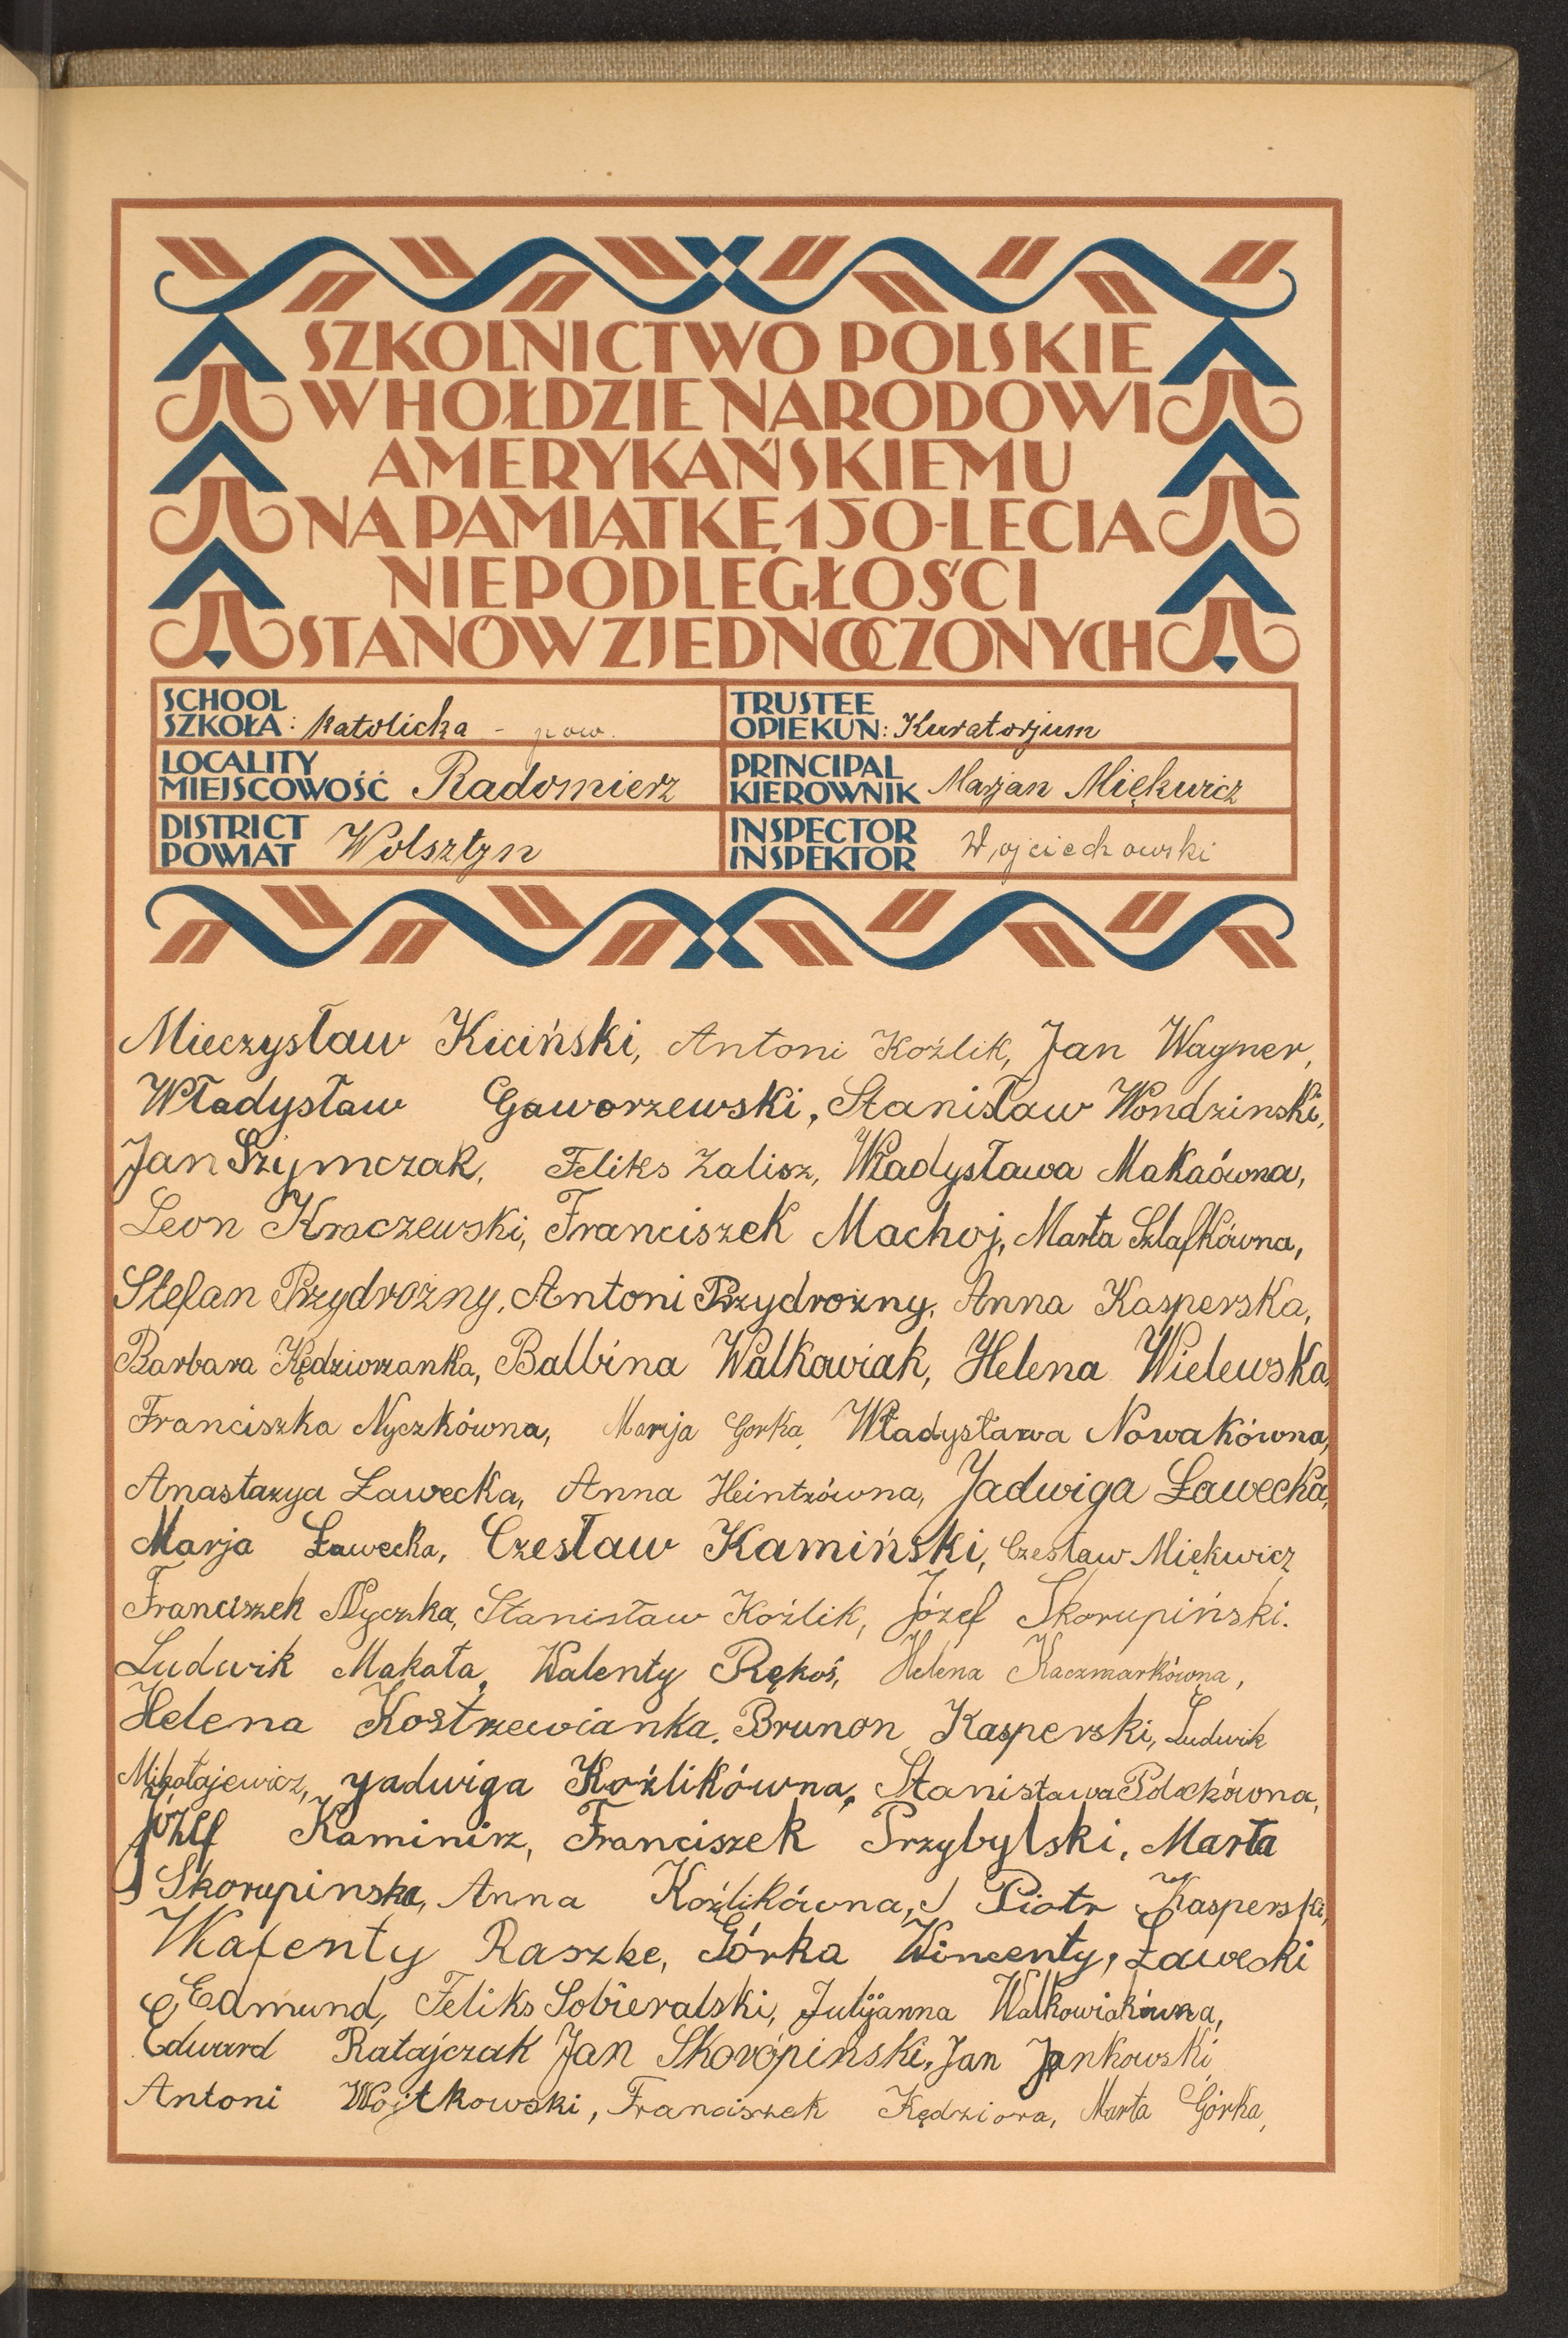 SZKOLNICTWO POLSKIE
W HOŁDZIE NARODOWI
AMERYKAŃSKIEMU
NA PAMIĄTKĘ 150-LECIA
NIEPODLEGŁOŚCI
STANÓW ZJEDNOCZONYCH
SCHOOL
SZKOŁA: Katolicka - pow.
TRUSTEE
OPIEKUN: Kuratorjum
LOCALITY
MIEJSCOWOŚĆ Radomierz
PRINCIPAL
KIEROWNIK Marjan Miękwicz
DISTRICT
POWIAT Wolsztyn
INSPECTOR
INSPEKTOR Wojciechowski
Mieczysław Kiciński, Antoni Koźlik, Jan Wagner,
Władysław Gaworzewski, Stanisław Wondzinski,
Jan Szymczak, Feliks Zalisz, Władysława Makaówna,
Leon Kraczewski, Franciszek Machoj, Marta Szlafkówna,
Stefan Przydrożny, Antoni Przydrożny, Anna Kasperska,
Barbara Kędziorzanka, Balbina Walkowiak, Helena Wielewska,
Franciszka Nyczkówna, Marija Gorka, Władysława Nowakówna,
Anastazya Ławecka, Anna Heintzówna, Jadwiga Ławecka,
Marja Ławecka, Czesław Kamiński, Czesław Miękwicz
Franciszek Nyczka, Stanisław Koźlik, Józef Skorupiński.
Ludwik Makała, Walenty Rękoś, Helena Kaczmarkówna,
Helena Kostrzewianka, Brunon Kasperski, Ludwik
Mikołajewicz, Jadwiga Koźlikówna, Stanisława Polckówna,
Józef Kaminirz, Franciszek Przybylski, Marta
Skorupinska, Anna Koźlikówna, Piotr Kasperski,
Walenty Raszke, Górka Wincenty, Ławecki
Edmund, Feliks Sobieralski, Julijanna Walkowiakówna,
Edward Ratajczak Jan Skorópiński, Jan Jankowski
Antoni Wojtkowski, Franciszek Kędziora, Marta Górka,